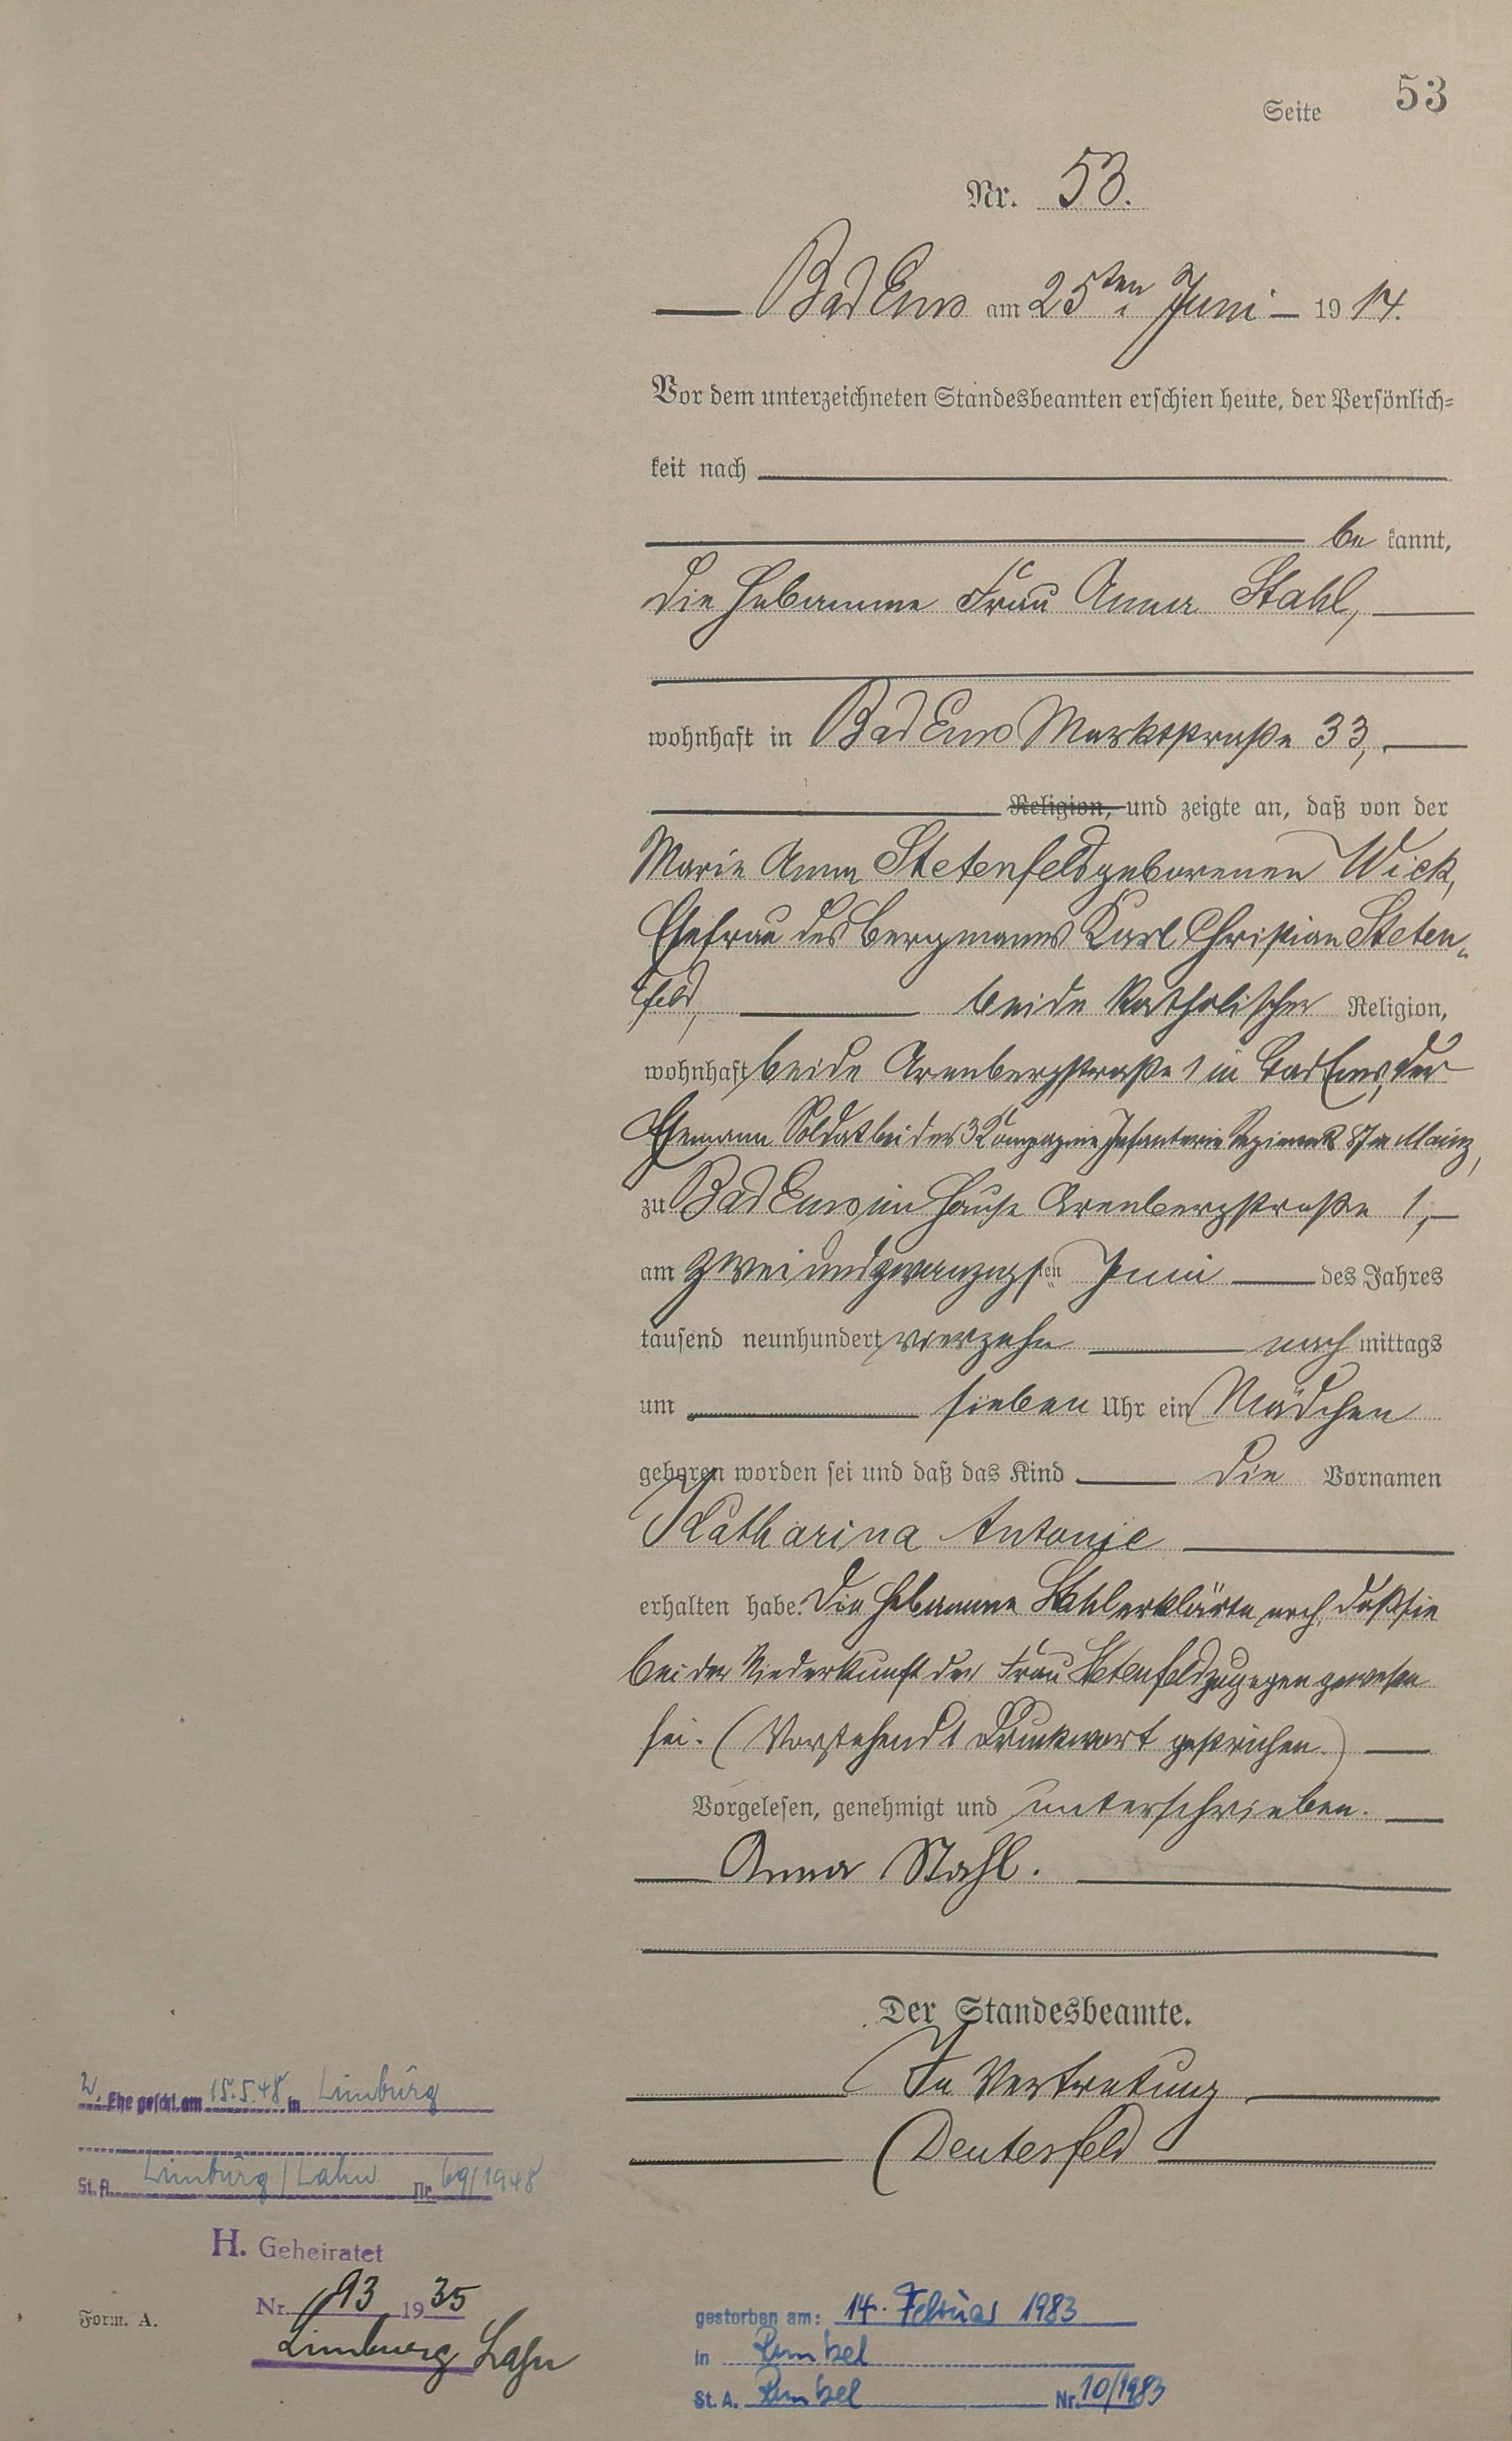 Seite 53
Nr. 53.
Bad Ems am 25ten Juni 1914.
Vor dem unterzeichneten Standesbeamten erschien heute, der Persönlich=
keit nach
be kannt,
die Hebamme Frau Anna Stahl,
wohnhaft in Bad Ems Marktstraße 33,
Religion, und zeigte an, daß von der
Marie Anna Stetenfeld geborenen Wick,
Ehefrau des Bergmanns Karl Christian Steten-
feld, beide katholischer Religion,
wohnhaft beide Arenbergstraße 1 in Bad Ems, der
Ehemann Soldat bei der 3 Kompagnie Infanterie Regiments 87 in Mainz,
zu Bad Ems im Hause Arenbergstraße 1,
am zwei und zwanzigsten Juni des Jahres
tausend neunhundert vierzehn nach mittags
um sieben Uhr ein Mädchen
geboren worden sei und daß das Kind die Vornamen
Katharina Antonie
erhalten habe. Die Hebamme Stahl erklärte noch, daß sie
bei der Niederkunft der Frau Stetenfeld zugegen gewesen
sei. (Vorstehend 1 Druckwort gestrichen.)
Vorgelesen, genehmigt und unterschrieben.
Anna Stahl.
Der Standesbeamte.
In Vertretung
Deutesfeld
2. Ehe geschl. am 15.5.48 in Limburg
St. A. Limburg/Lahn Nr. 69/1948
H. Geheiratet
Nr. 193 1935
Limburg Lahn
Form. A.
gestorben am: 14. Februar 1983
in Runkel
St. A. Runkel Nr. 10/1983